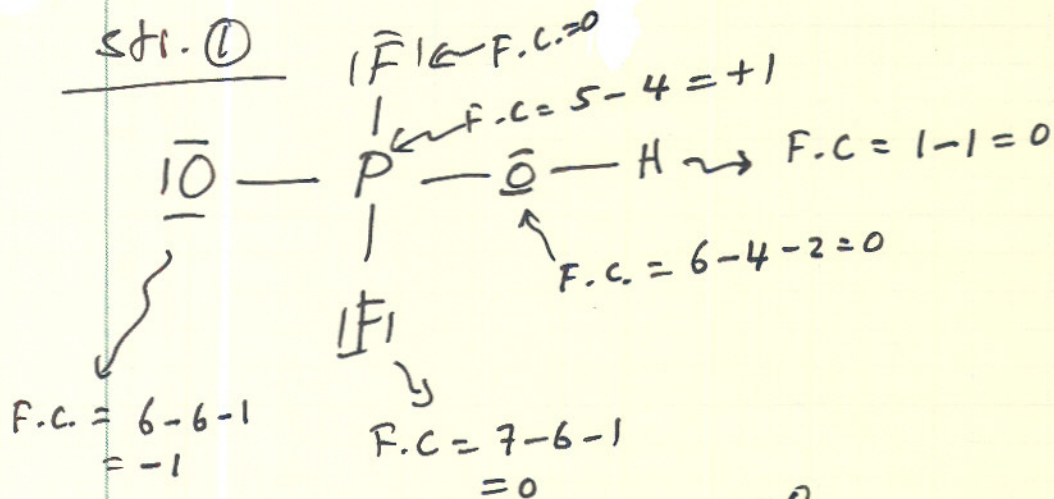 str. ①
|F̅| F.C.=0
F.C = 5-4 = +1
|O̅ — P — O̅ — H F.C = 1-1 = 0
F.C. = 6-4-2=0
|F|
F.C. = 6-6-1
= -1
F.C = 7-6-1
= 0